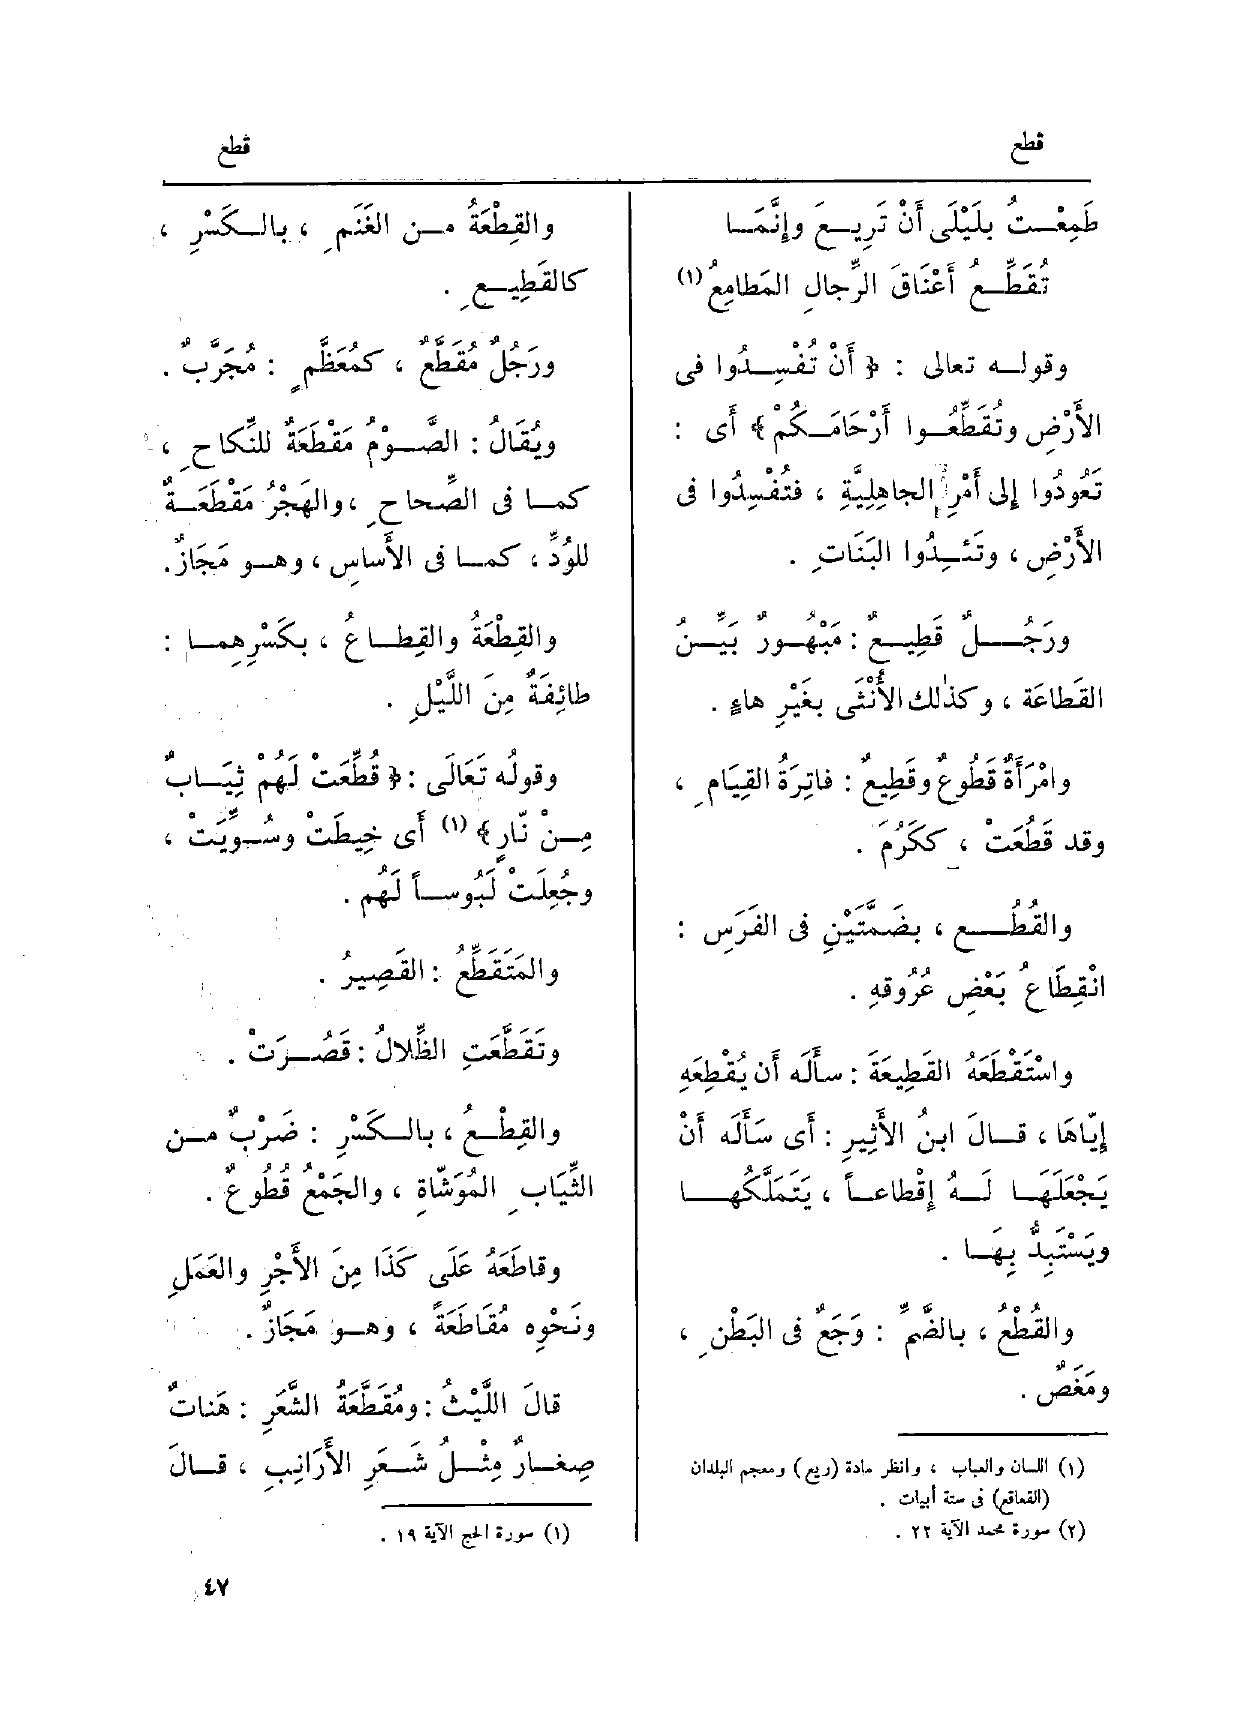 قطع
قطع
طَمِعْتُ بِلَيْلَى أَنْ تَرِيعَ وإِنَّمَا
تُقَطِّعُ أَعْنَاقَ الرِّجالِ المَطامِعُ (١)
وقوله تعالى : ﴿ أَنْ تُفْسِدُوا فى
الأَرْضِ وتُقَطِّعُوا أَرْحَامَكُمْ ﴾ أَى :
تَعُودُوا إلى أَمْرِ الجاهِلِيَّةِ ، فتُفْسِدُوا فى
الأَرْضِ ، وتَئِدُوا البَنَاتِ .
ورَجُلٌ قَطِيعٌ : مَبْهُورٌ بَيِّنُ
القَطاعَة ، وكذٰلك الأُنْثَى بغَيْرِ هاءٍ .
وامْرَأَةٌ قَطُوعٌ وقَطِيعٌ : فاتِرَةُ القِيَامِ ،
وقد قَطُعَتْ ، ككَرُمَ .
والقُطُع ، بضَمَّتَيْنِ فى الفَرَسِ :
انْقِطَاعُ بَعْضِ عُرُوقِهِ .
واسْتَقْطَعَهُ القَطِيعَةَ : سأَلَه أَن يُقْطِعَهِ
إِيّاهَا ، قالَ ابنُ الأَثِيرِ : أَى سَأَلَه أَنْ
يَجْعَلَهَا لَهُ إِقْطاعاً ، يَتَمَلَّكُها
ويَسْتَبِدُّ بِهَا .
والقُطْعُ ، بالضَّمِّ : وَجَعٌ فى البَطْنِ ،
ومَغَصٌ .
(١) اللسان والعباب ، وانظر مادة (ريع) ومعجم البلدان
(القعاقع) فى ستة أبيات .
(٢) سورة محمد الآية ٢٢ .
والقِطْعَةُ من الغَنَمِ ، بالكَسْرِ ،
كالقَطِيعِ .
ورَجُلٌ مُقَطَّعٌ ، كمُعَظَّمٍ : مُجَرَّبٌ .
ويُقَالُ : الصَّوْمُ مَقْطَعَةٌ للنِّكاحِ ،
كما فى الصِّحاحِ ، والهَجْرُ مَقْطَعَةٌ
للوُدِّ ، كما فى الأَساسِ ، وهو مَجَازٌ .
والقِطْعَةُ والقِطاعُ ، بكَسْرِهِما :
طائِفَةٌ مِنَ اللَّيْلِ .
وقولُه تَعَالَى : ﴿ قُطِّعَتْ لَهُمْ ثِيَابٌ
مِنْ نَّارٍ ﴾ (١) أَى خِيطَتْ وسُوِّيَتْ ،
وجُعِلَتْ لَبُوساً لَهُم .
والمُتَقَطِّعُ : القَصِيرُ .
وتَقَطَّعَتِ الظِّلالُ : قَصُرَتْ .
والقِطْعُ ، بالكَسْرِ : ضَرْبٌ من
الثِّيَابِ المُوَشّاةِ ، والجَمْعُ قُطُوعٌ .
وقاطَعَهُ عَلَى كَذَا مِنَ الأَجْرِ والعَمَلِ
ونَحْوِه مُقَاطَعَةً ، وهو مَجَازٌ .
قالَ اللَّيْثُ : ومُقَطَّعَةُ الشَّعَرِ : هَناتٌ
صِغارٌ مِثْلُ شَعَرِ الأَرَانِبِ ، قالَ
(١) سورة الحج الآية ١٩ .
٤٧